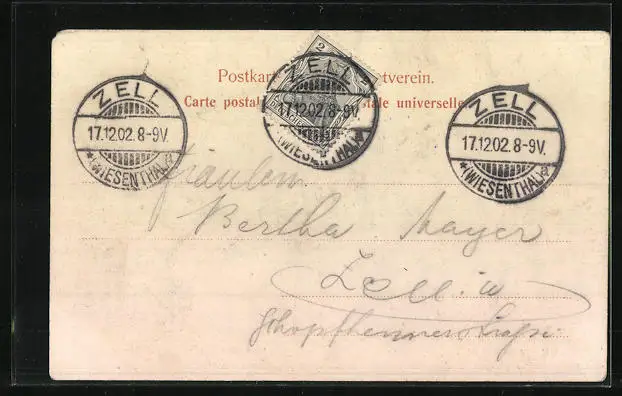 Postkar tverein.
Carte postal tale universelle
2
ZELL
17.12.02.8-9V.
*(WIESENTHAL)*
ZELL
17.12.02.8-9V.
(WIESENTHAL)
ZELL
17.12.02.8-9V.
*(WIESENTHAL)*
Fräulein
Bertha Mayer
Zell i/W
Schopfheimerstraße